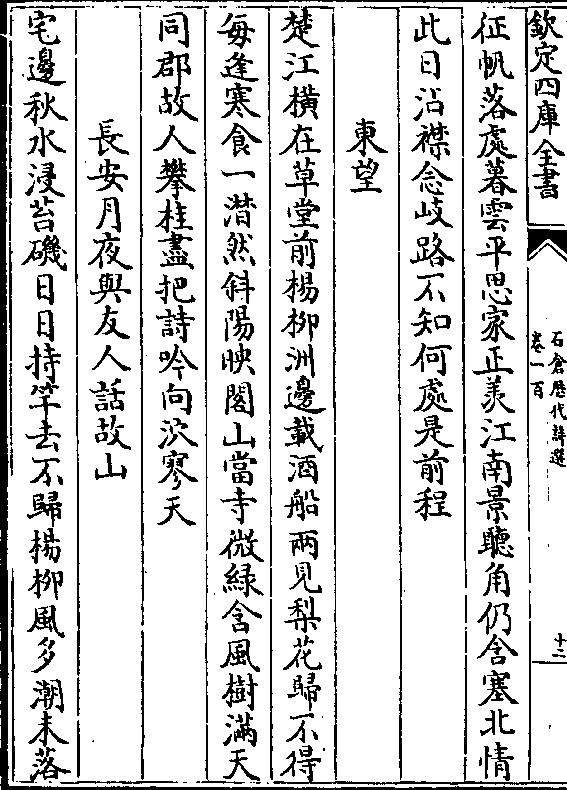 欽定四庫全書
石倉歷代詩選
卷一百
十二
征帆落處暮雲平思家正羨江南景聽角仍含塞北情
此日沾襟念岐路不知何處是前程
東望
楚江橫在草堂前楊柳洲邊載酒船兩見梨花歸不得
每逢寒食一潸然斜陽映閣山當寺微緑含風樹滿天
同郡故人攀桂盡把詩吟向泬寥天
長安月夜與友人話故山
宅邊秋水浸苔磯日日持竿去不歸楊柳風多潮未落